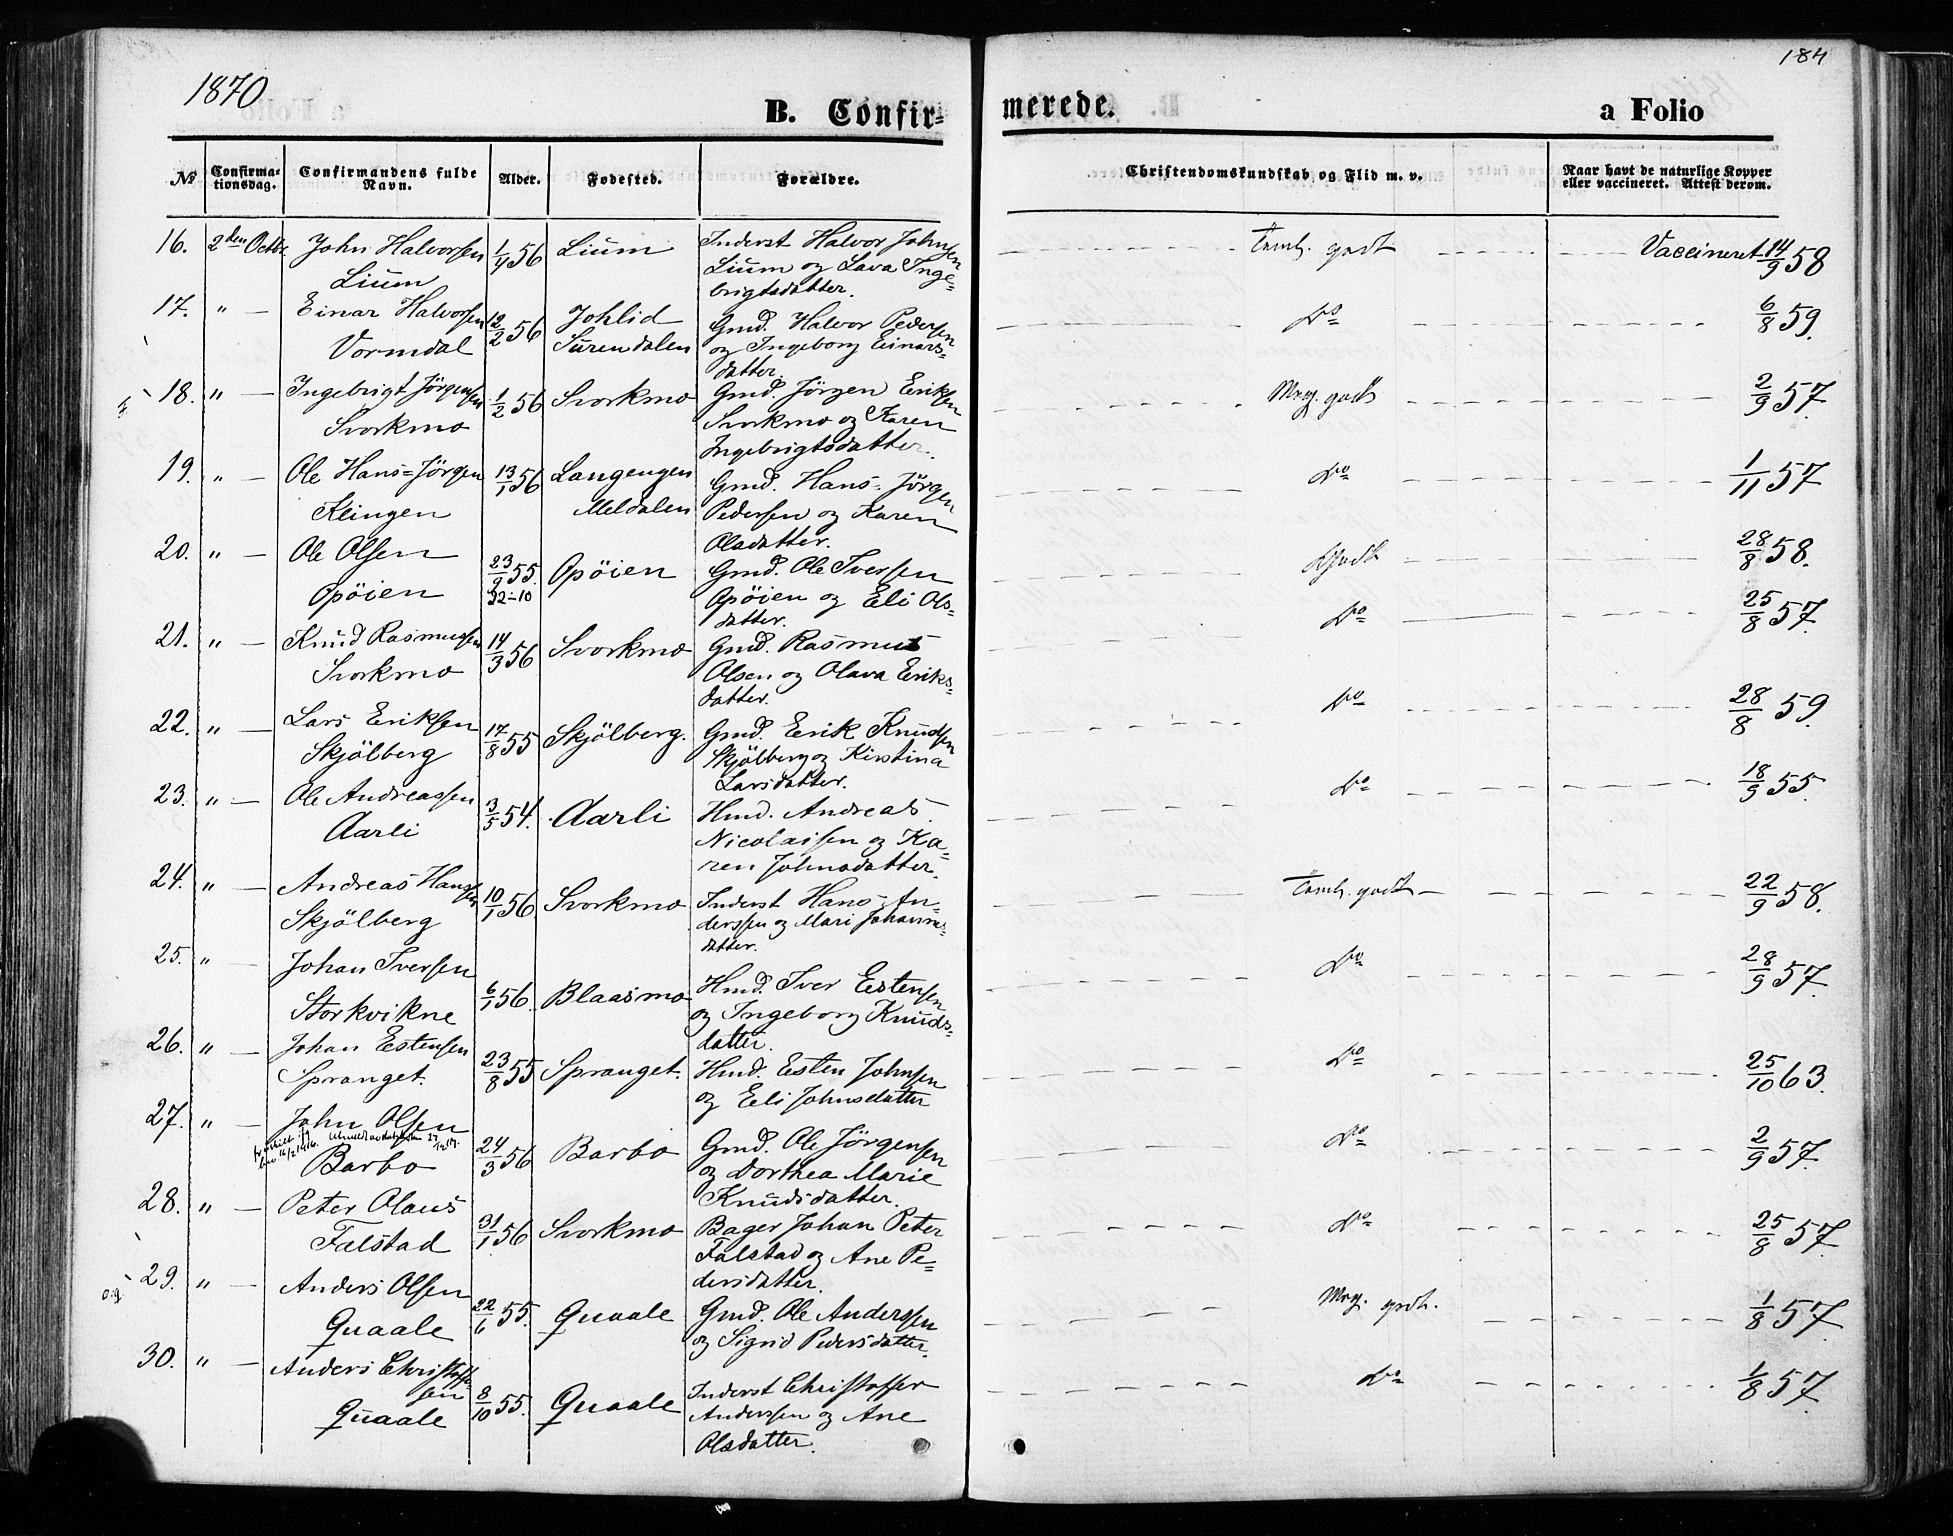 1870
184
B. Confir=
merede.
a Folio
No
Confirma-
tionsdag.
Confirmandens fulde
Navn.
Alder.
Fødested.
Forældre.
Christendomskundskab og Flid m. v.
Naar havt de naturlige Kopper
eller vaccineret. Attest derom.
16. 2den Octbr. John Halvorsen 1/4 56 Lium Inderst Halvor Johnsen Teml. godt Vaccineret 14/9 58
Lium Lium og Lava Inge-
brigtsdatter.
17. " — Einar Halvorsen 12/2 56 Johlid Gmd. Halvor Pedersen Do 6/8 59.
Vormdal Surendalen og Ingeborg Einars-
datter.
18. " — Ingebrigt Jörgensen 1/2 56 Svorkmo Gmd. Jörgen Eriksen Meg. godt 2/9 57.
Svorkmo Svorkmo og Karen
Ingebrigtsdatter.
19. " — Ole Hans=Jörgen 13/1 56 Langengen Gmd. Hans=Jörgen Do 1/11 57
Klingen Meldalen Pedersen og Karen
Olsdatter.
20. " — Ole Olsen 23/9 55. Opöien Gmd. Ole Iversen 28/8 58.
Opöien Opöien og Eli Ols-
datter.
21. " — Knud Rasmussen 14/3 56 Svorkmo Gmd. Rasmus Do 25/8 57.
Svorkmo Olsen og Olava Eriks-
datter.
22. " — Lars Eriksen 17/8 55 Skjölberg. Gmd. Erik Knudsen Do 28/8 59.
Skjölberg Skjölberg og Kirstina
Larsdatter.
23. " — Ole Andreassen 3/5 54. Aarli Hmd. Andreas Do 18/9 55.
Aarli Nicolaisen og Ka-
ren Johnsdatter.
24. " — Andreas Hanssen 10/1 56 Svorkmo Inderst Hans An- Teml. godt 22/9 58.
Skjölberg derssen og Mari Johanns-
datter.
25. " — Johan Iversen 6/1 56. Blaasmo Hmd. Iver Estensen Do 28/9 57.
Storkvikne og Ingeborg Knuds-
datter.
26. " — Johan Estensen 23/8 55 Spranget. Hmd. Esten Johnsen Do 25/10 63.
Spranget. og Eli Johnsdatter
27. " — John Olsen 24/3 56 Barbo Gmd. Ole Jörgensen Do 2/9 57.
Barbo og Dorthea Marie
Knudsdatter.
28. " — Peter Olaus 31/1 56 Svorkmo Bager Johan Peter Do 25/8 57.
Falstad Falstad og Ane Pe-
dersdatter.
29. " — Anders Olsen 22/6 55. Quaale Gmd. Ole Anderssen Meg. godt. 1/8 57.
Quaale og Sigrid Pedersdatter.
30. " — Anders Christoffer 8/10 55. Quaale Inderst Christoffer Do 1/8 57.
sen Anderssen og Ane
Quaale Olsdatter.